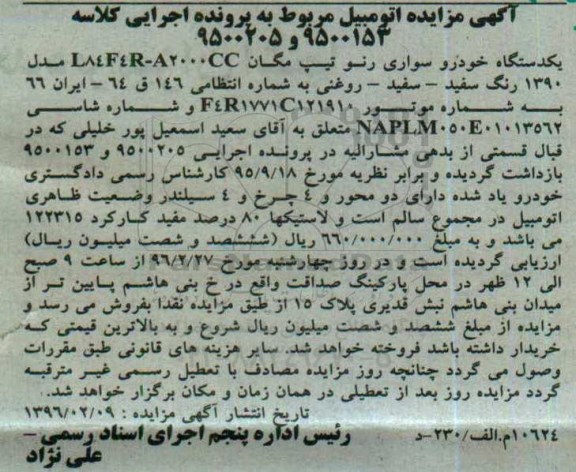 آگهی مزایده اتومبیل مربوط به پرونده اجرایی کلاسه
۹۵۰۰۱۵۳ و ۹۵۰۰۲۰۵
یکدستگاه خودرو سواری رنو تیپ مگان L۸٤F٤R-A۲۰۰۰CC مدل
۱۳۹۰ رنگ سفید – سفید – روغنی به شماره انتظامی ۱٤۶ ق ۶٤ – ایران ۶۶
به شماره موتور F٤R۱۷۷۱C۱۲۱۹۱۰ و شماره شاسی
NAPLM۰۵۰E۰۱۰۱۳۵۶۲ متعلق به آقای سعید اسمعیل پور خلیلی که در
قبال قسمتی از بدهی مشارالیه در پرونده اجرایی ۹۵۰۰۲۰۵ و ۹۵۰۰۱۵۳
بازداشت گردیده و برابر نظریه مورخ ۹۵/۹/۱۸ کارشناس رسمی دادگستری
خودرو یاد شده دارای دو محور و ٤ چرخ و ٤ سیلندر وضعیت ظاهری
اتومبیل در مجموع سالم است و لاستیکها ۸۰ درصد مفید کارکرد ۱۲۲۳۱۵
می باشد و به مبلغ ۶۶۰/۰۰۰/۰۰۰ ریال (ششصد و شصت میلیون ریال)
ارزیابی گردیده است و در روز چهارشنبه مورخ ۹۶/۲/۲۷ از ساعت ۹ صبح
الی ۱۲ ظهر در محل پارکینگ صداقت واقع در خ بنی هاشم پایین تر از
میدان بنی هاشم نبش قدیری پلاک ۱۵ از طیق مزایده نقدا بفروش می رسد و
مزایده از مبلغ ششصد و شصت میلیون ریال شروع و به بالاترین قیمتی که
خریدار داشته باشد فروخته خواهد شد. سایر هزینه های قانونی طبق مقررات
وصول می گردد چنانچه روز مزایده مصادف با تعطیل رسمی غیر مترقبه
گردد مزایده روز بعد از تعطیلی در همان زمان و مکان برگزار خواهد شد.
تاریخ انتشار آگهی مزایده : ۱۳۹۶/۰۲/۰۹
رئیس اداره پنجم اجرای اسناد رسمی –
علی نژاد
۱۰۶۲٤م.الف/۲۳۰-د